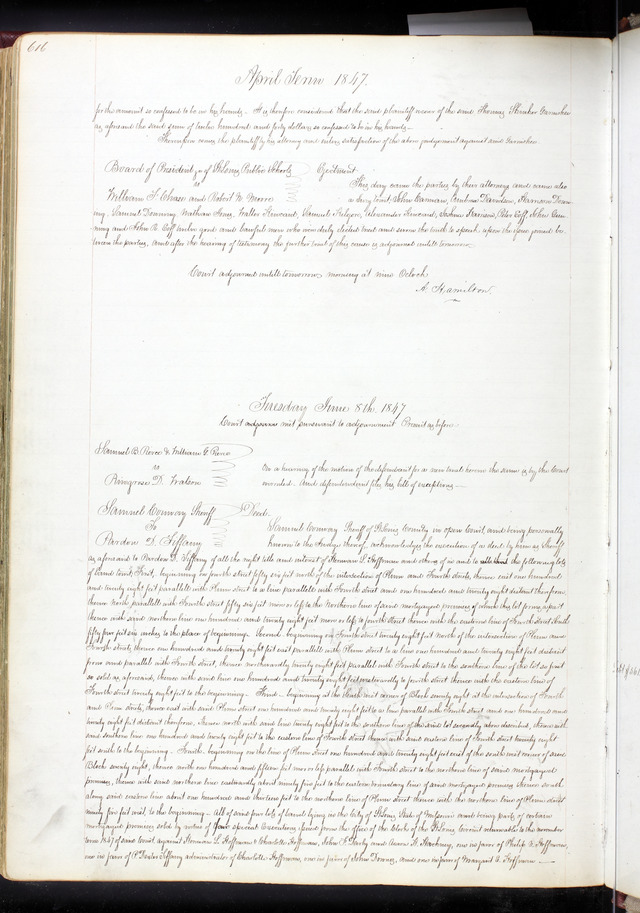 616
April Term 1847.
for the amount so confessed to be in his hands. It is therefore considered that the said plaintiff recover of the said Thomas Garnishee
as aforesaid the said sum of twelve hundred and forty dollars so confessed to be in his hands—
Thereupon comes the plaintiff by his attorney and enters satisfaction of the above judgement against said Garnishee
Board of President &c of St Louis Public Schools Ejectment
vs
This day came the parties by their attorneys and came also
William T. Chase and Robert W. Moore a Jury towit, John
Samuel Downing, Nathan Samuel Alexander Peter Goff, John
and John R. Goff twelve good and lawful men who were duly elected tried and sworn the truth to speak upon the issue joined be-
tween the parties, and after the hearing of testimony the further trial of this cause is adjourned untill tomorrow
Court adjourned untill tomorrow morning at nine Oclock
A. Hamilton.
Tuesday June 8th 1847
Court met pursuant to adjournment Present as before
Samuel B. Pierce & William G. Pierce
vs
On a hearing of the motion of the defendant for a new trial herein the same is by the Court
D. Watson overruled. And defendant files his bill of exceptions—
Samuel Conway Sheriff Deed.
To
Samuel Conway Sheriff of St Louis County in open Court, and being personally
Pardon D. Tiffany known to the Judge thereof, acknowledges the execution of a deed by him as Sheriff
as aforesaid to Pardon D. Tiffany of all the right title and interest of Herman L. Hoffman and others of in and to the following lots
of land towit, First, beginning in fourth street fifty six feet north of the intersection of Plum and Fourth streets, thence east one hundred
and twenty eight feet parallell with Plum street to a line parallell with Fourth street and one hundred and twenty eight distant therefrom,
thence North parallell with Fourth street fifty six feet more or less to the Northern line of said mortgaged premises of which this lot forms a part
thence with said northern line one hundred and twenty eight feet more or less to fourth street thence with the eastern line of Fourth street South
fifty five feet six inches to the place of beginning. Second. beginning on Fourth street twenty eight feet north of the intersection of Plum and
Fourth street, thence one hundred and twenty eight feet east parallell with Plum street to a line one hundred and twenty eight feet distant
from and parallel with Fourth street, thence northwardly twenty eight feet parallel with Fourth street to the southern line of the lot so first
so sold as aforesaid, thence with said line one hundred and twenty eight feet westwardly to fourth street thence with the eastern line of
Fourth street twenty eight feet to the beginning. Third— beginning at the South west corner of Block seventy eight at the intersection of Fourth
and Plum streets, thence east with said Plum street one hundred and twenty eight feet to a line parallel with Fourth street and one hundred and
twenty eight feet distant therefrom, thence north with said line twenty eight feet to the southern line of the said lot secondly above described, thence with
said southern line one hundred and twenty eight feet to the eastern line of Fourth street thence with said eastern line of Fourth street twenty eight
feet south to the beginning. Fourth. beginning on the line of Plum street one hundred and twenty eight feet east of the south west corner of said
Block seventy eight, thence north one hundred and fifteen feet more or less parallel with Fourth street to the northern line of said mortgaged
premises, thence with said northern line eastwardly about ninety five feet to the eastern boundary line of said mortgaged premises thence south
along said eastern line about one hundred and thirteen feet to the northern line of Plum street thence with the northern line of Plum street
ninety five feet west, to the beginning— all of said four lots of land lying in the City of St Louis State of Missouri and being part of certain
mortgaged premises sold by virtue of four special Executions issued from the office of the Clerk of the St Louis Circuit returnable to the November
term 1847 of said Court against Herman L. Hoffman & Charlotte Hoffman, John F. Darby and one in favor of Philip A. Hoffman,
one in favor of P. Dexter Tiffany administrator of Charlotte Hoffman, one in favor of John Downes, and one in favor of Margaret A. Hoffman—